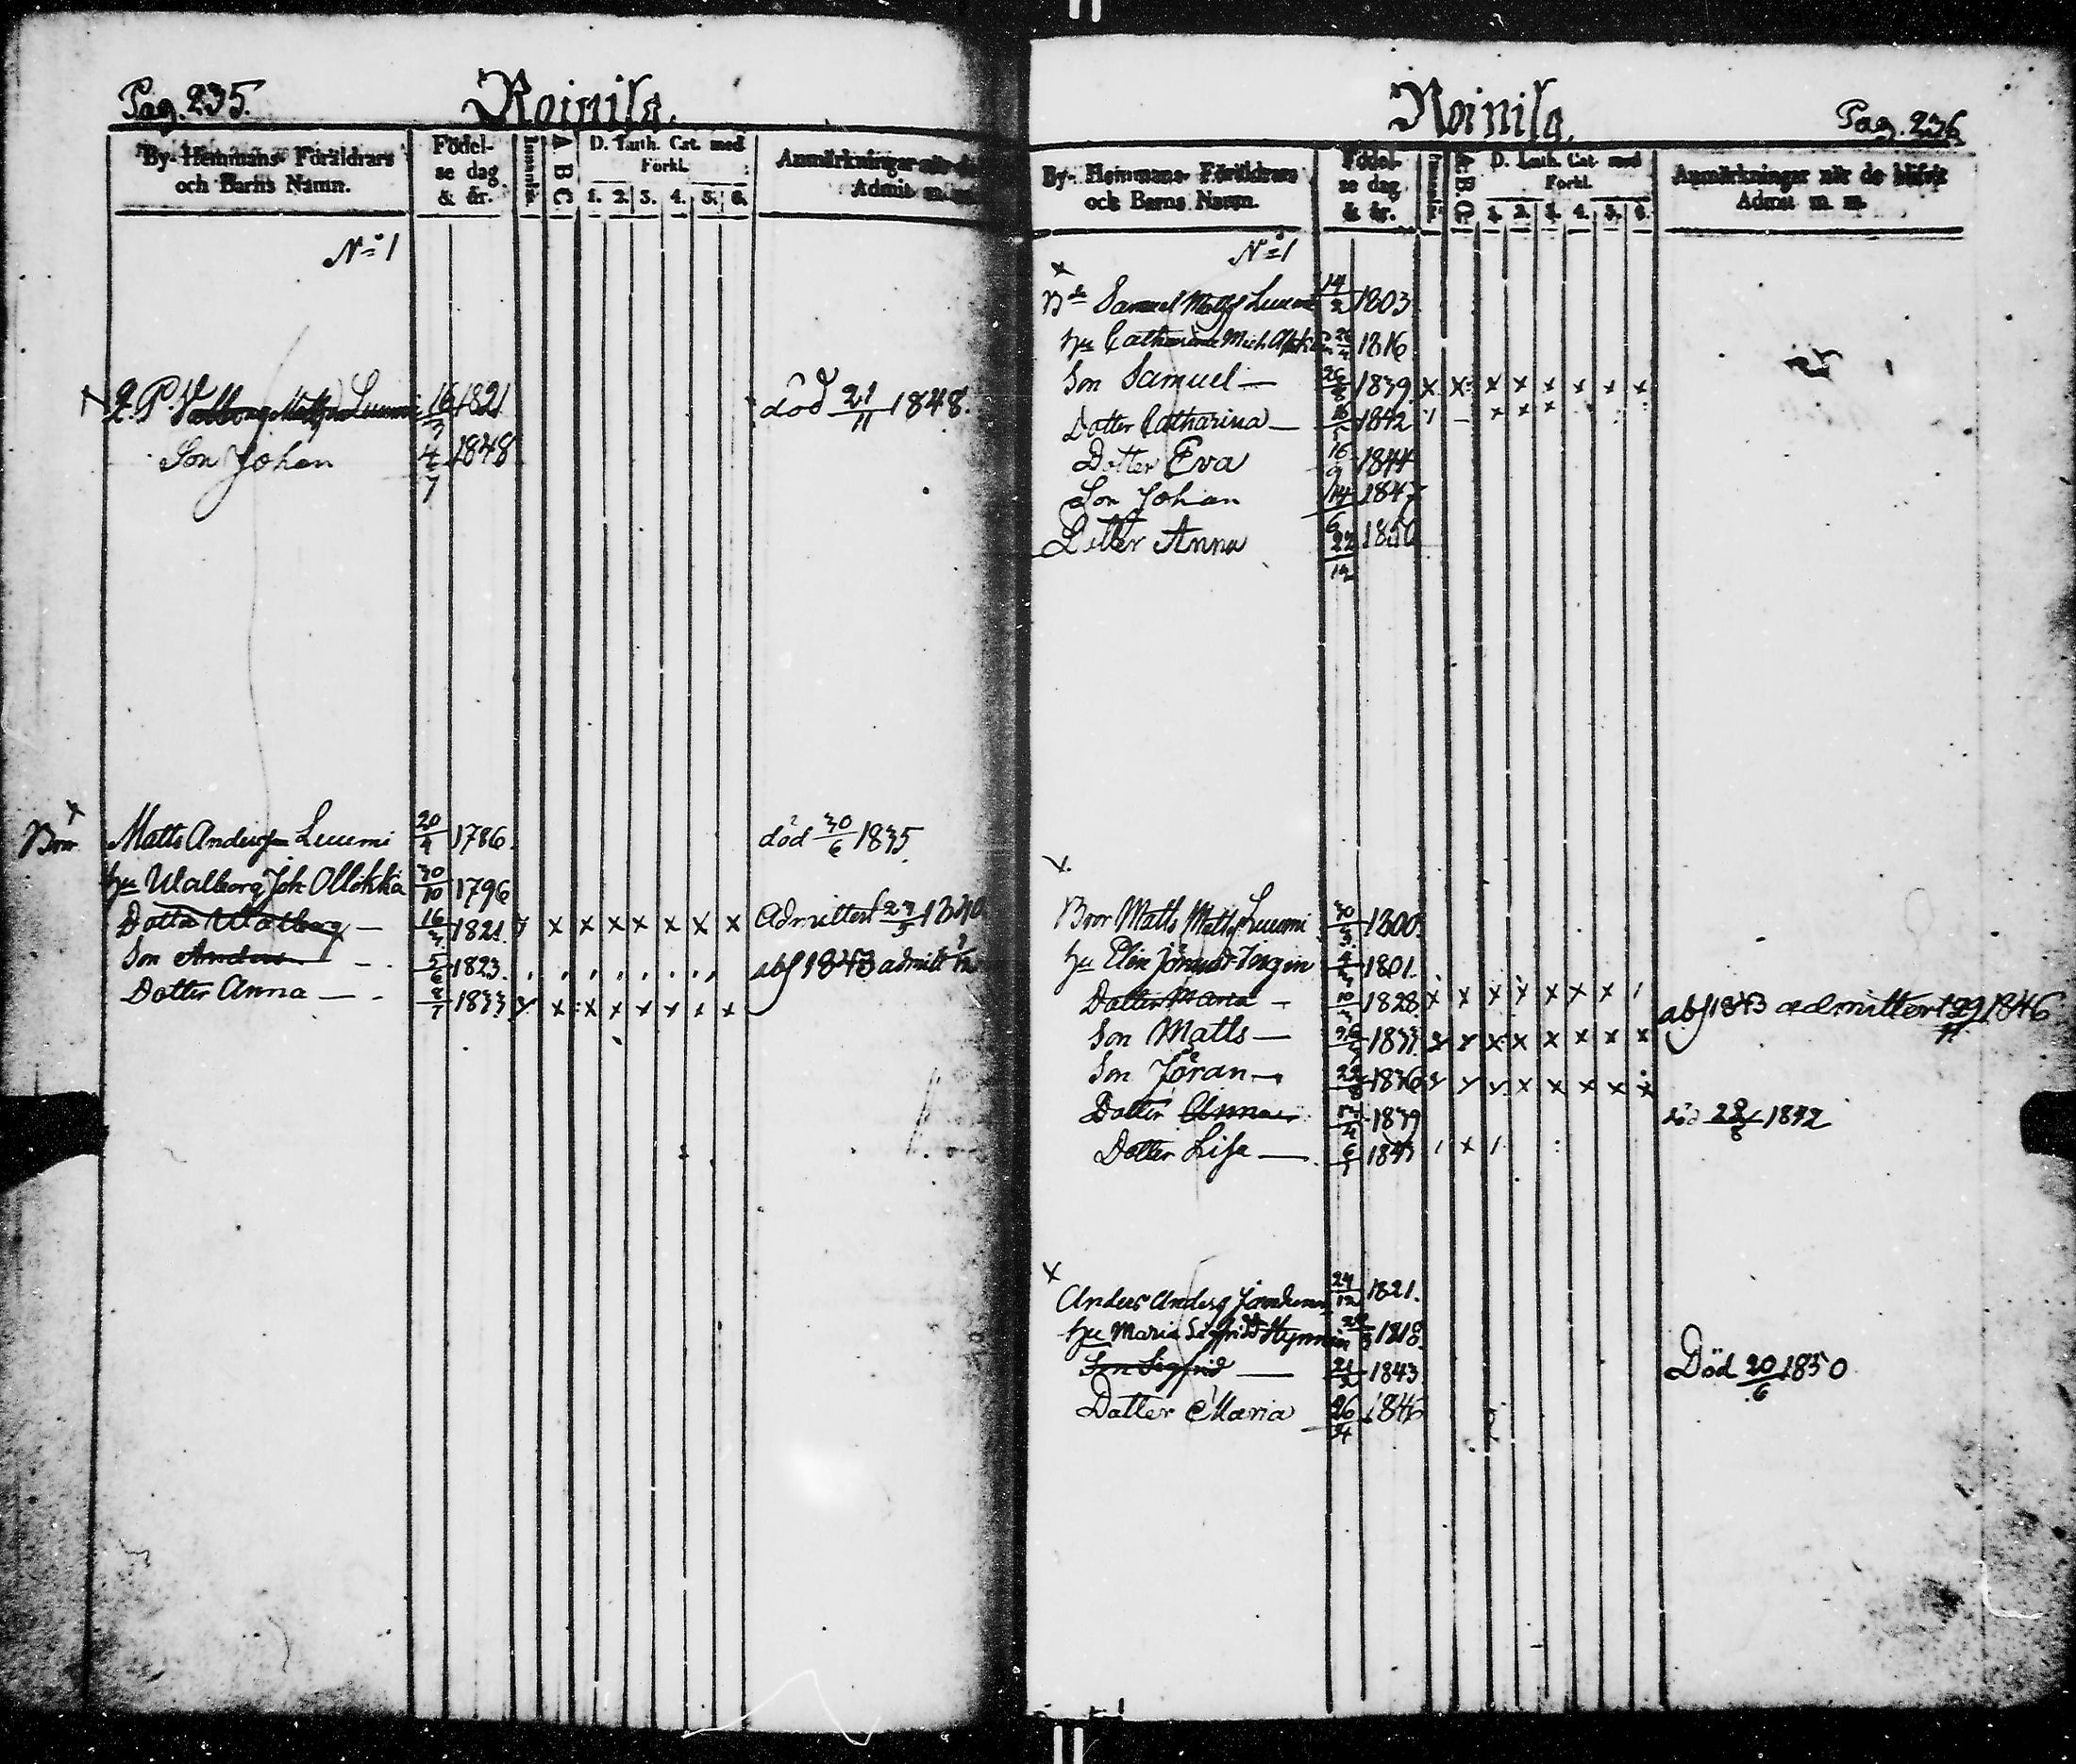 Pag. 235.
Roinila.
By- Hemmans- Föräldrars
och Barns Namn.
Födel-
se dag
& år.
Innanläs.
A B C.
D. Luth. Cat. med
Förkl.
1. 2. 3. 4. 5. 6.
Anmärkningar när de
Admit m. m.
No 1
Q. P. Valborg Matsd. Luumi 16/3 1821 död 21/11 1848.
Son Johan 4/7 1848
Bror Matts Andersson Luumi 20/4 1786. död 30/6 1835.
hu Walborg Joh. Ollikka 30/10 1796
Dotter Walborg — 16/3 1821. x x x x x x x x Admitterd 1840
Son Anders — 5/6 1823. abs 1843 admitt
Dotter Anna — 8/7 1833 x x x x x x x x
Roinila.
Pag. 236
By- Hemmans- Föräldrars
och Barns Namn.
Födel-
se dag
& år.
Innanläs.
A. B. C.
D. Luth. Cat. med
Förkl.
1. 2. 3. 4. 5. 6.
Anmärkningar när de blifvit
Admit m. m.
No 1
x
Samuel Matss Luumi 14/2 1803
hu Catharina Mich. 1816
Son Samuel — 1839 x x x x x x x x
Dotter Catharina — 1842 x x x
Dotter Eva 16/9 1844
Son Johan 14/6 1847
Dotter Anna 22/12 1850
x
Bror Matts Matss Luumi 1800.
hu Elin 1801.
Dotter Maria — 1828. x x x x x x x abs 1843 admittert 29/11 1846
Son Matts — 1833. x x x x x x x x
Son Jöran — 1836 x x x x x x x x
Dotter Anna 1839 död 28/8 1842
Dotter Lisa — 6/1 1843 x
x
Anders Anders 24/12 1821.
hu Maria Sigfridsd. Hynninen 1818.
Son Sigfrid — 21/2 1843 Död 20/6 1850
Dotter Maria 26/4 1846